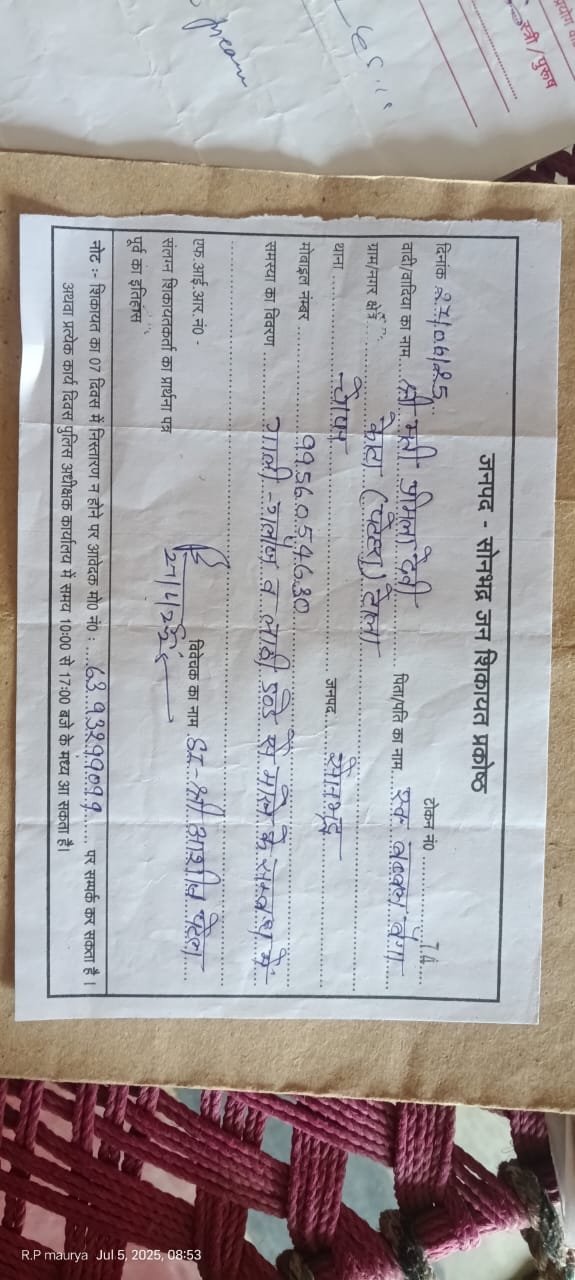 स्त्री / पुरूष
जनपद - सोनभद्र जन शिकायत प्रकोष्ठ
टोकन नं०
दिनांक
वादी/वादिया का नाम श्री मती प्रमिला देवी पिता/पति का नाम
ग्राम/नगर क्षेत्र टोला
थाना चोपन जनपद सोनभद्र
मोबाइल नम्बर 9956054630
समस्या का विवरण गाली-गलौज व लाठी डण्डे से मारने के सम्बन्ध में
एफ.आई.आर.नं० -
विवेचक का नाम SI- श्री आशीष पटेल
संलग्न शिकायतकर्ता का प्रार्थना पत्र
पूर्व का इतिहास
नोट :- शिकायत का 07 दिवस में निस्तारण न होने पर आवेदक मो० नं० : 6393299099 पर सम्पर्क कर सकता है।
अथवा प्रत्येक कार्य दिवस पुलिस अधीक्षक कार्यालय में समय 10:00 से 17:00 बजे के मध्य आ सकता है।
R.P maurya Jul 5, 2025, 08:53